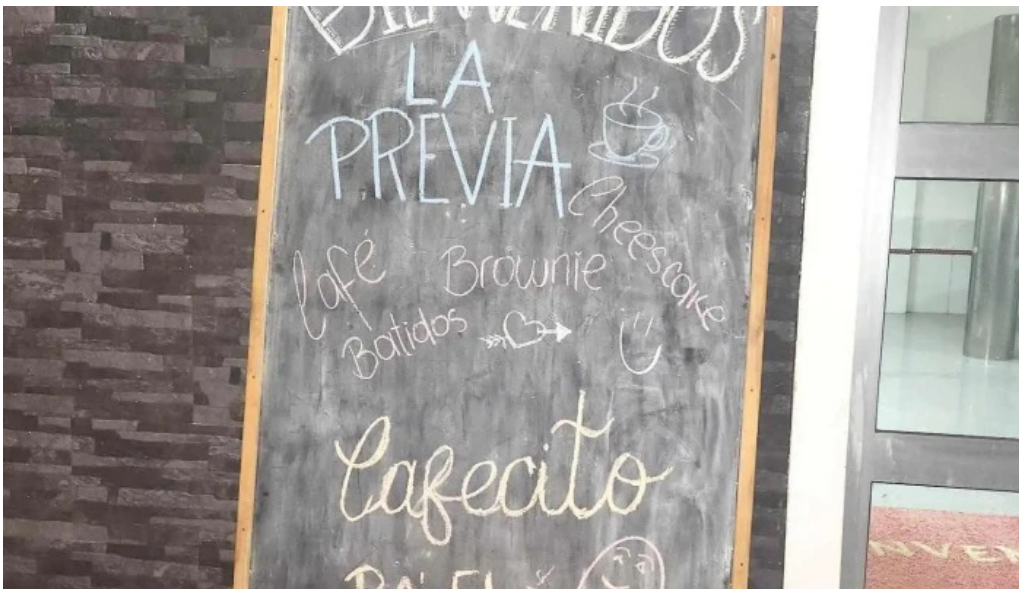 BIENVENIDOS
LA
PREVIA
Cheescake
Café
Brownie
Batidos
Cafecito
PA' EL
NVEN